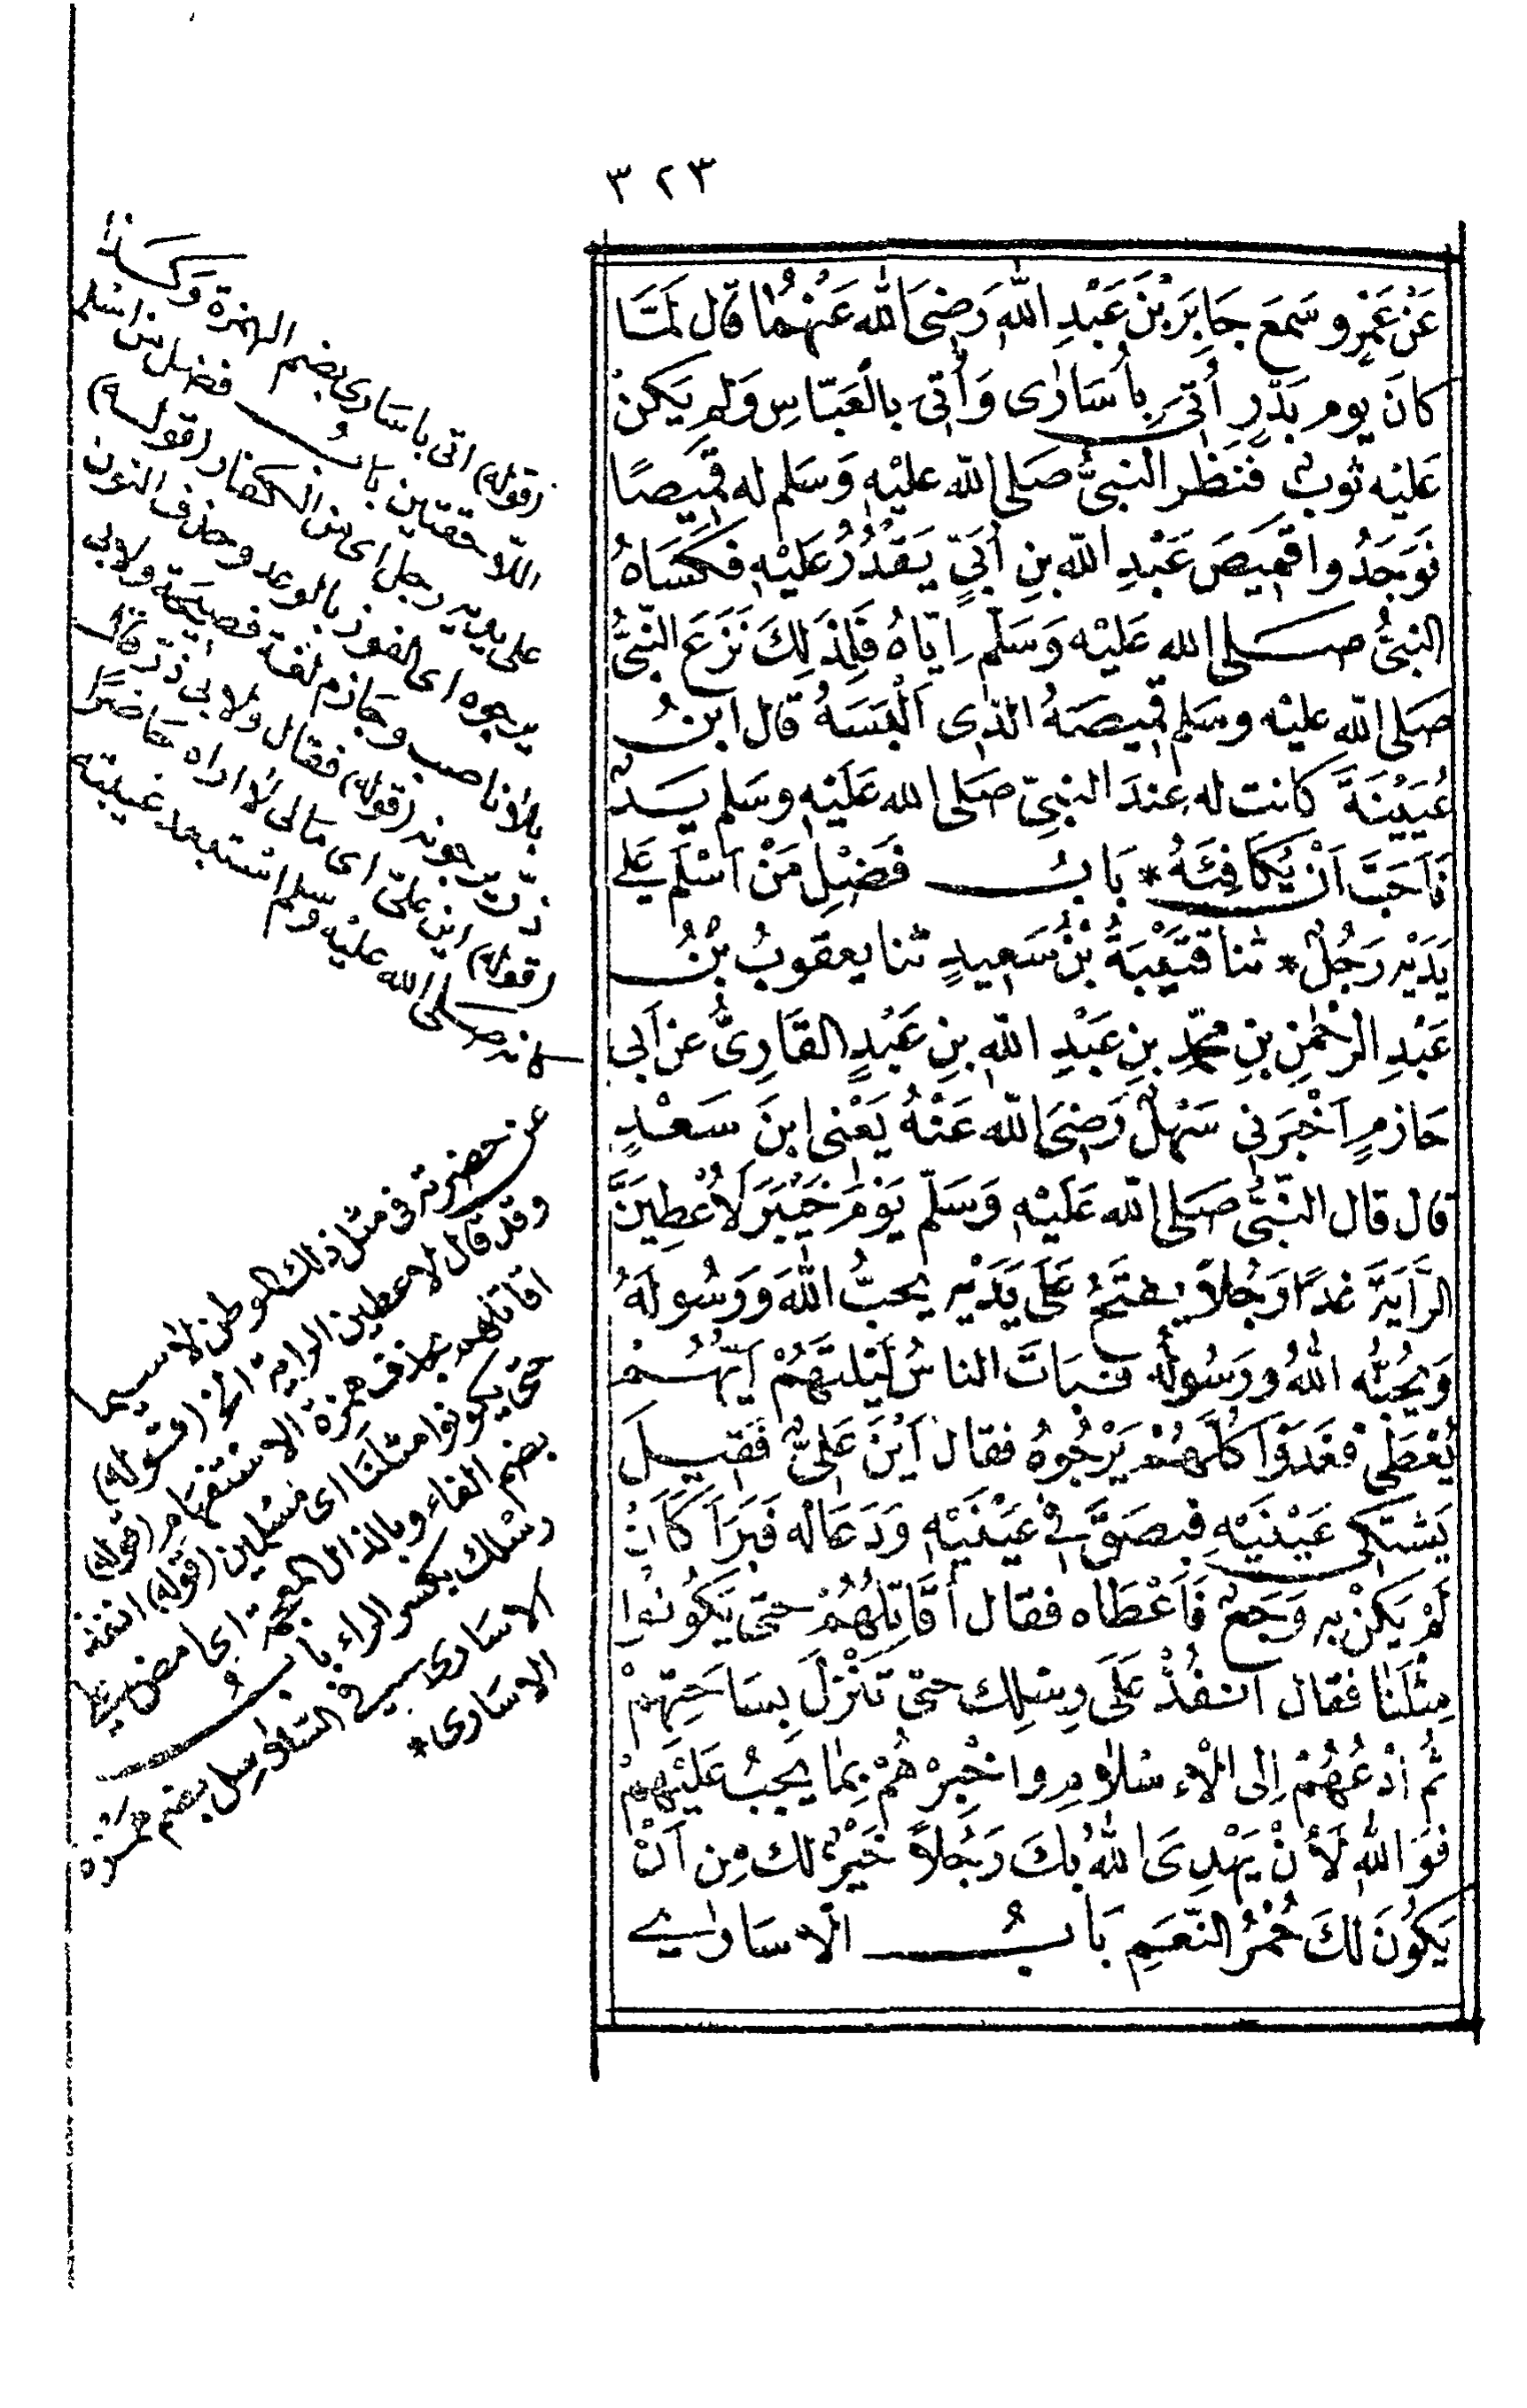 ٣٢٣
عَنْ عَمْرٍو سَمِعَ جَابِرَ بْنَ عَبْدِ اللّٰهِ رَضِىَ اللّٰه عَنْهُمَا قال لَمَّا
كانَ يوم بَدْرٍ أُتِىَ بِأُسَارٰى وَأُتِىَ بالْعَبّاسِ وَلم يَكنْ
عَليْه ثوبٌ فَنَظر النبىُّ صَلى اللّه عليْهِ وَسَلم له قمِيصًا
فَوَجَدُوا قمِيصَ عَبْدِ اللّه بنِ اُبَيٍّ يَقْدُرُ عَليْهِ فكَسَاهُ
النبىُّ صلى الله عَليْه وَسَلّم اِيّاهُ فَلِذَلِكَ نَزَعَ النّبىُّ
صَلى اللّهِ عليْه وسَلم قمِيصَهُ الذى اَلْبَسَهُ قال ابنُ
عُيَيْنَةَ كانت له عِندَ النبىّ صَلى الله عَلَيْهِ وسَلم يَدٌ
فَاَحَبَّ اَنْ يُكَافِئَهُ * بَابُ فَضْلِ مَنْ اَسْلَم عَلى
يَدَيْهِ رَجُلٌ * ثنا قتَيْبَةُ بْنُ سَعِيدٍ ثنا يعقوبُ بْنُ
عَبْدِ الرَّحْمٰنِ بنِ محمّدِ بنِ عَبْدِ اللّٰهِ بنِ عَبْدٍ القَارِىُّ عن اَبى
حَازمٍ اَخْبَرَنِى سَهْلٌ رَضِىَ اللّه عَنْهُ يَعْنى ابنَ سَعْدٍ
قال قال النّبىُّ صَلى اللّه عَلَيْهِ وَسَلّم يَوْمَ خَيْبَرَ لَأُعْطِيَنَّ
الرَّايَةَ غدًا رَجُلاً يفتَحُ عَلَى يَدَيْهِ يحبُّ اللّٰهَ وَرَسُولَهُ
وَيُحبُّه اللّٰهُ ورَسُولُه فبَاتَ الناسُ لَيْلتَهُمْ اَيّهُمْ
يُعْطَى فغَدَوْا كلّهُمْ يَرْجُوهُ فقال اَيْنَ عَلىٌّ فَقِيلَ
يَشْتَكِى عَيْنَيْهِ فبصَقَ فِى عَيْنَيْهِ وَدَعَا له فَبَرَأَ كَاَنْ
لَمْ يَكنْ بهِ وَجَعٌ فَاَعْطَاه فقال أُقَاتِلُهُمْ حتى يَكُونُوا
مِثْلَنَا فقال انْفُذْ عَلَى رِسْلِك حتى تَنْزِلَ بِسَاحَتِهِمْ
ثُم ادْعُهُمْ اِلى الْاِسْلَامِ وَاخْبِرْهُمْ بِمَا يَجِبُ عَلَيْهِمْ
فوَ اللّٰهِ لَأَنْ يَهْدِىَ اللّٰهُ بكَ رَجُلاً خَيْرٌ لك مِن اَنْ
يَكُونَ لَكَ حُمْرُ النَّعَمِ بَابُ الْاسَارٰى
(قوله) اتى باسَارى بضم الهمزة وكذا
اللّاحقتين بابُ فضل من اسْلم
على يديه رجل اى من الكفار (قوله)
يرجوه اى الفوز بالوعد وحذف النون
بلا ناصب وجازم لغة فصيحَة ولابى
ذرّ يرجونه (قوله) فقال ولابى ذرّ قال
(قوله) اين علىّ اى مَالى لا اراه حَاضرًا
كانه صلى الله عليْه وسلم اسْتبعد غيبته
عن حضرته فى مثل ذلك الموطن لا سيما
وقد قال لاعطين الراية الخ (قوله)
اقاتلهم بحذف همزة الاستفهَام (قوله)
حتى يكونوا مثلنَا اى مسْلمين (قوله) انفذ
بضم الفاء وبالذال المعجمة اى امض (على)
رسْلك بكسر الراء بابُ
الاسَارى فى السّلاسِل بضم همزة
الاسَارى *